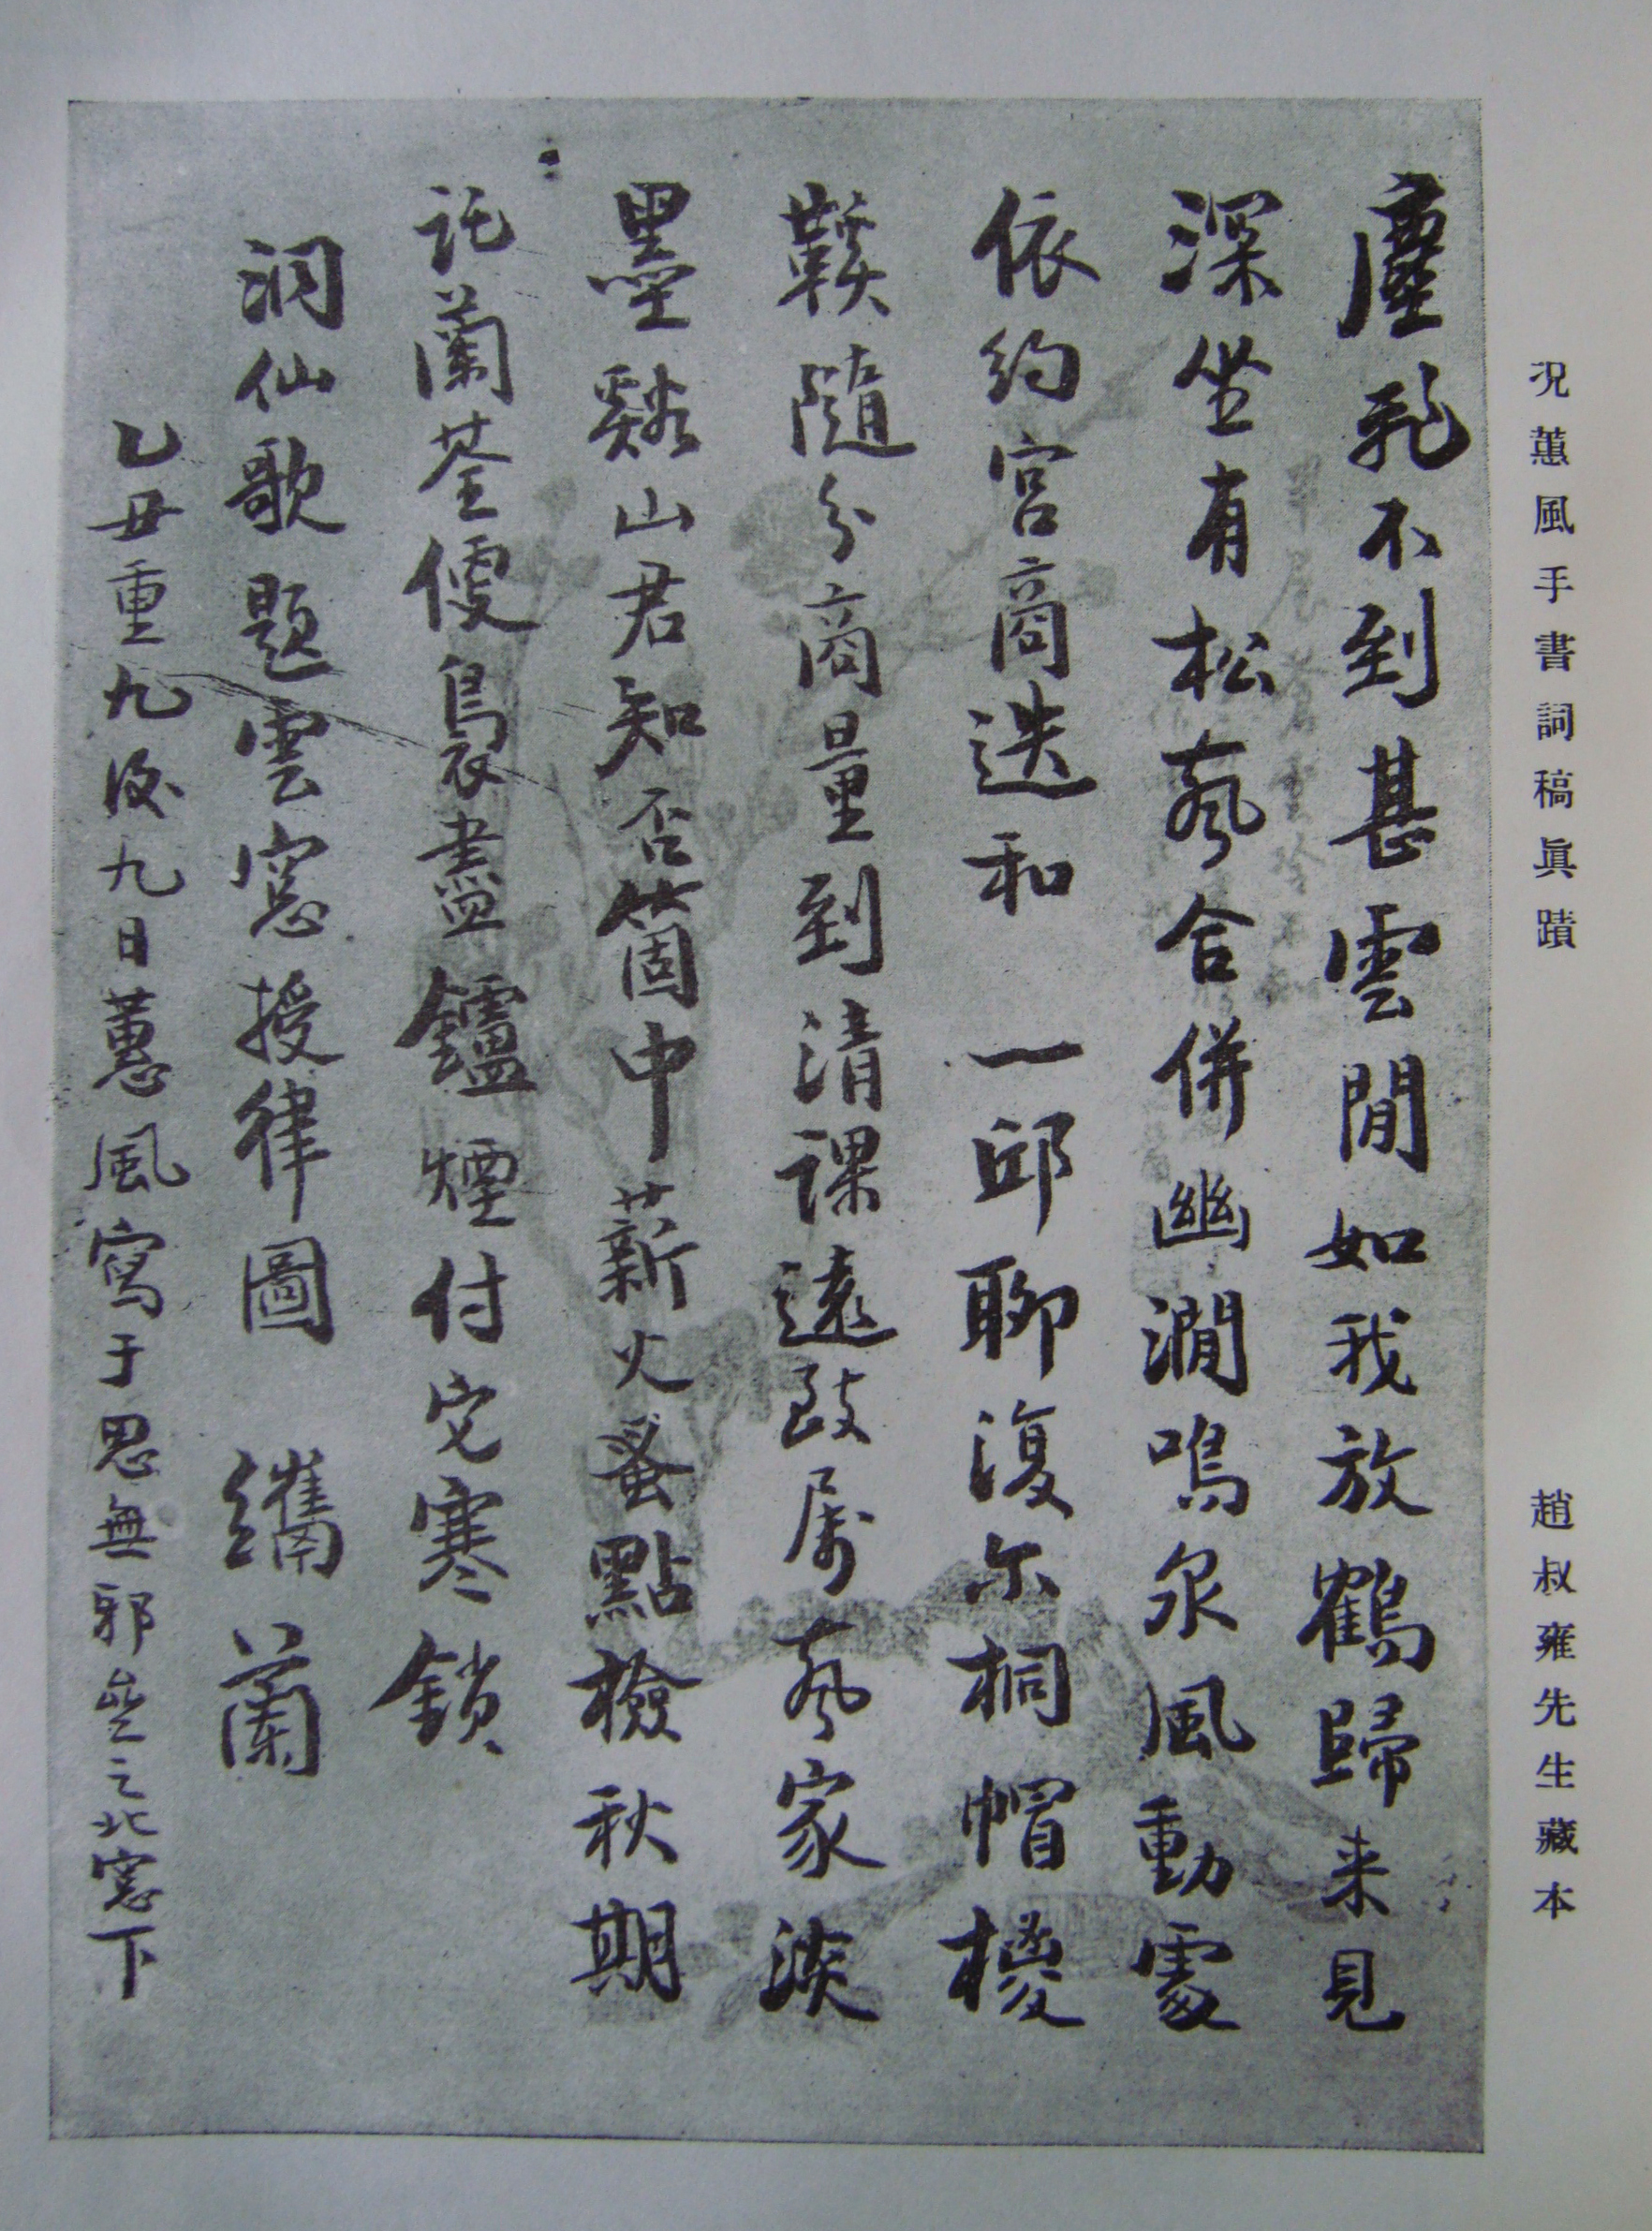 況蕙風手書詞稿眞蹟
趙叔雍先生藏本
塵飛不到甚雲閒如我放鶴歸来見
深坐有松聲合併幽澗鳴泉風動處
依約宮商迭和 一邱聊復尔桐帽椶
鞵隨分商量到清課遠致屬家淡
墨谿山君知否箇中薪火蚤點檢秋期
託蘭荃優裊盡鑪煙付它寒鎖
洞仙歌題雲窓授律圖 纗蘭
乙丑重九後九日蕙風寫于思無邪㞢之北窓下